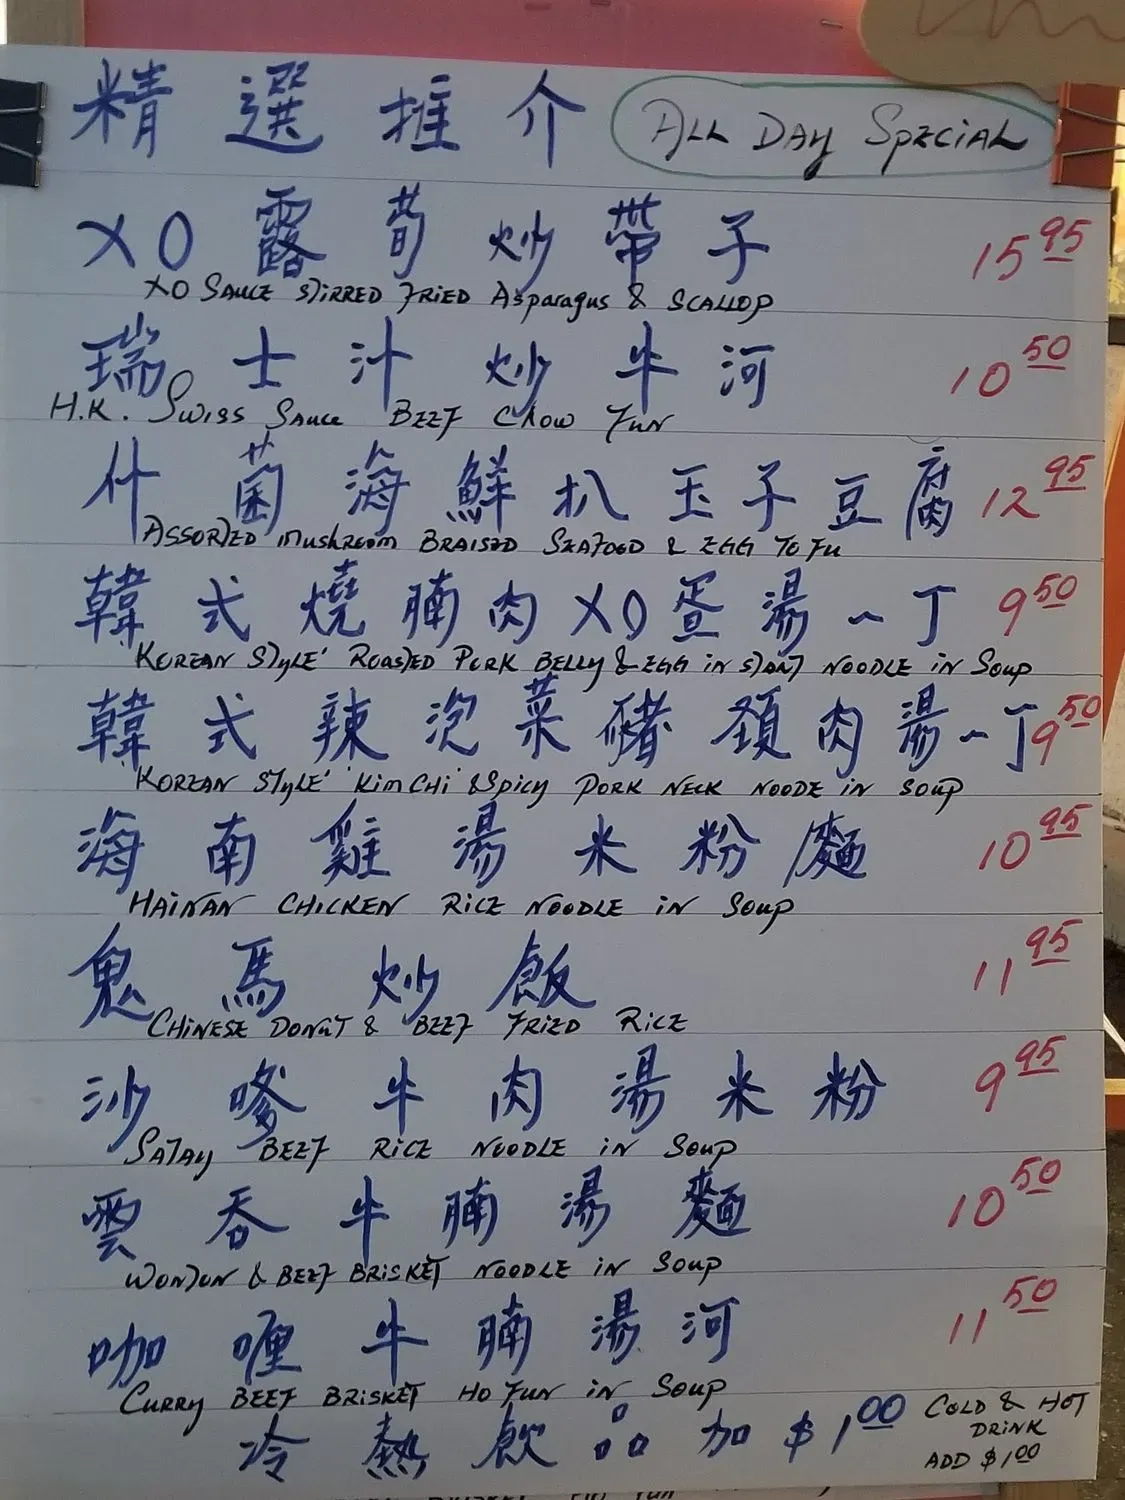 精選推介 ALL DAY SPECIAL
XO露荀炒帶子 15.95
XO SAUCE STIRRED FRIED Asparagus & SCALLOP
瑞士汁炒牛河 10.50
H.K. SWISS SAUCE BEEF CHOW FUN
什菌海鮮扒玉子豆腐 12.95
ASSORTED MUSHROOM BRAISED SEAFOOD & EGG TOFU
韓式燒腩肉XO蛋湯一丁 9.50
KOREAN STYLE' ROASTED PORK BELLY & EGG IN STANT NOODLE IN SOUP
韓式辣泡菜豬頚肉湯一丁 9.50
KOREAN STYLE' 'KIMCHI' & SPICY PORK NECK NOODE IN SOUP
海南雞湯米粉/麵 10.95
HAINAN CHICKEN RICE NOODLE IN SOUP
鬼馬炒飯 11.95
CHINESE DONUT & BEEF FRIED RICE
沙嗲牛肉湯米粉 9.95
SATAY BEEF RICE NOODLE IN SOUP
雲吞牛腩湯麵 10.50
WONTON & BEEF BRISKET NOODLE IN SOUP
咖喱牛腩湯河 11.50
CURRY BEEF BRISKET HO FUN IN SOUP
冷熱飲品加$1.00 COLD & HOT
DRINK
ADD $1.00